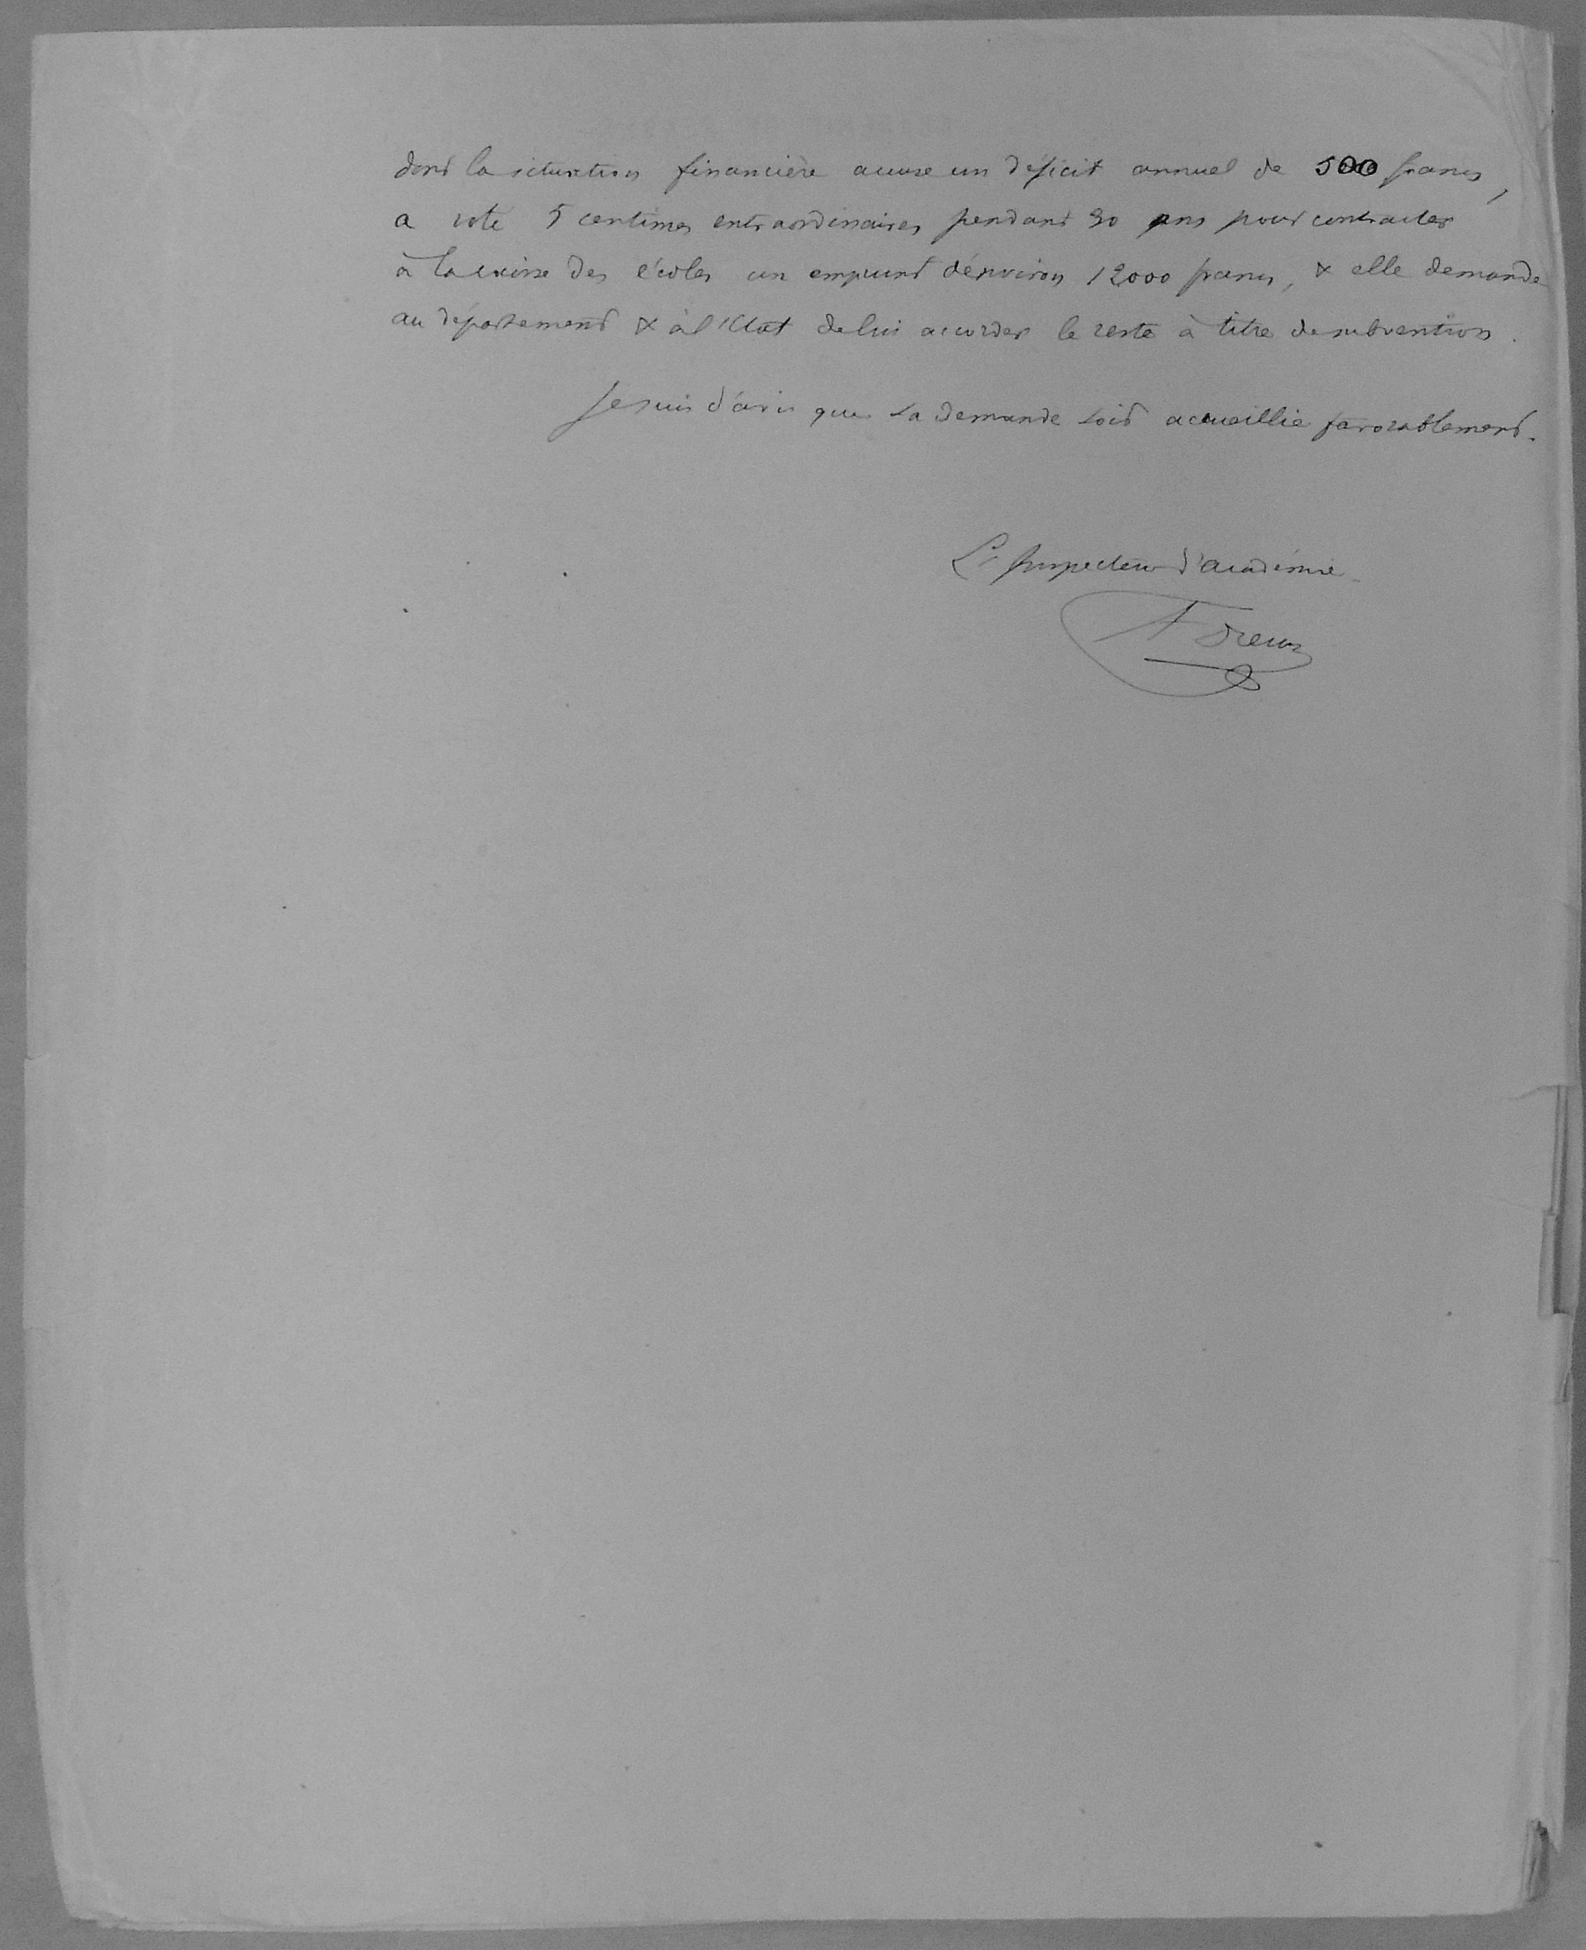 dont la situation financière accuse un déficit annuel de 500 francs,
a voté 5 centimes extraordinaires pendant 30 ans pour contracter
à la caisse des écoles un emprunt d'environ 12000 francs, & elle demande
au département & à l'Etat de lui accorder le reste à titre de subvention.
Je suis d'avis que sa demande soit accueillie favorablement.
L'Inspecteur d'académie